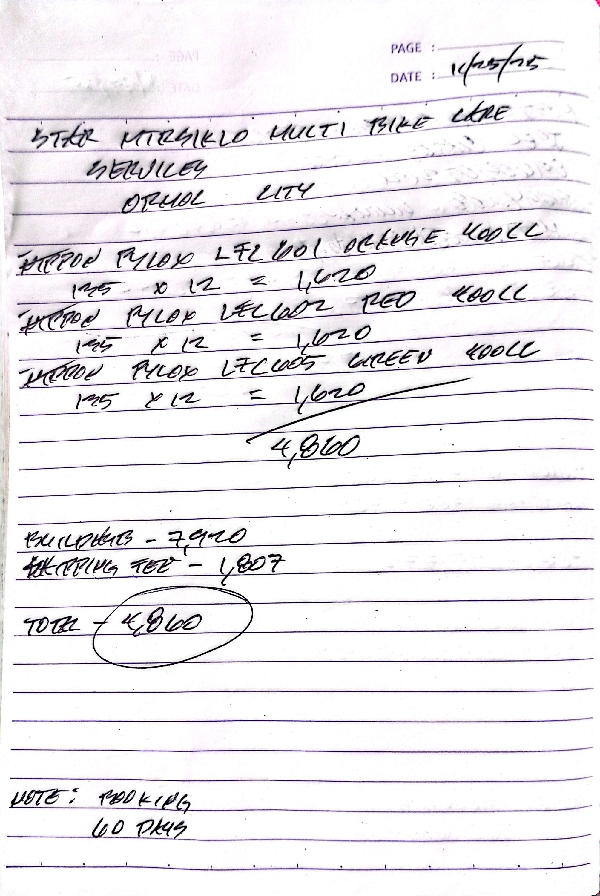 PAGE :
DATE : 11/25/25
STAR MTRSIKLO MULTI BIKE CARE
SERVICES
ORMOC CITY
NIPPON PYLOX LFC 601 ORANGE 400CC
135 x 12 = 1,620
NIPPON PYLOX LFC602 RED 400CC
135 x 12 = 1,620
NIPPON PYLOX LFC605 GREEN 400CC
135 x 12 = 1,620
4,860
BUILDHUB - 7,920
SHIPPING FEE - 1,807
TOTAL - 4,860
NOTE: BOOKING
60 DAYS